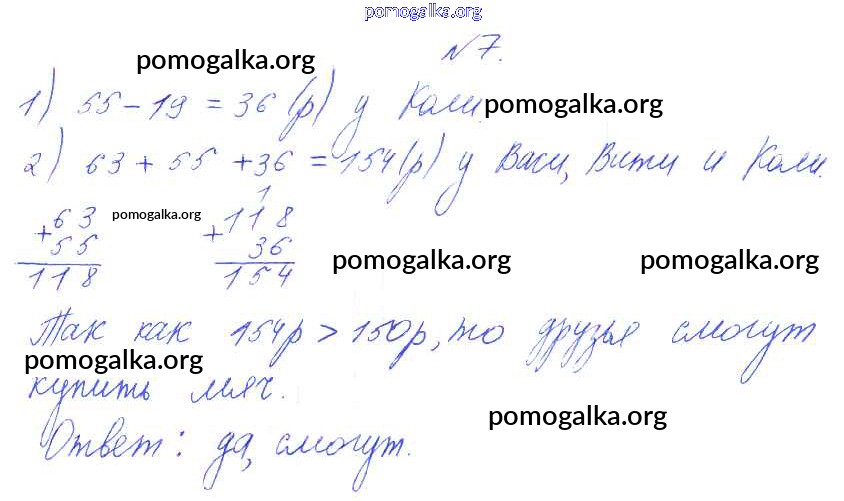 pomogalka.org
N7.
pomogalka.org
1) 55 - 19 = 36 (р) у Коли. pomogalka.org
2) 63 + 55 + 36 = 154 (р) у Васи, Вити и Коли.
1
+63 pomogalka.org +118
55 36
118 154 pomogalka.org pomogalka.org
Так как 154р > 150р, то друзья смогут
pomogalka.org
купить мяч.
pomogalka.org
Ответ: да, смогут.